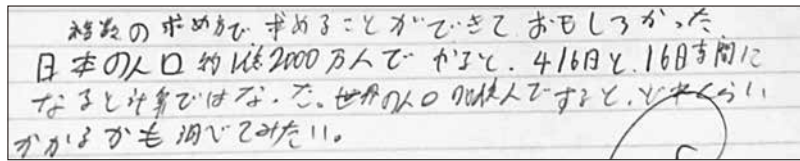 複数の求め方で求めることができておもしろかった
日本の人口約1億2000万人でやると、416日と、16時間に
なると計算ではなった。世界の人口70億人ですると、どれくらい
かかるかも調べてみたい。